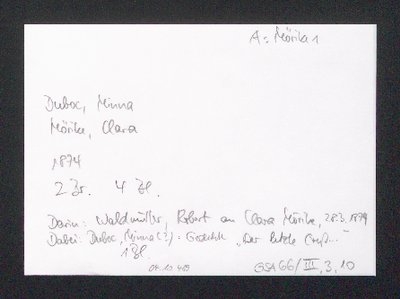 A: Mörike 1
Duboc, Minna
Mörike, Clara
1874
2 Br. 4 Bl.
Darin: Waldmüller, Robert an Clara Mörike, 28.3.1874
Dabei: Duboc, Minna (?): Gedicht "Der letzte Gruß..."
1 Bl.
GSA 66/III, 3, 10